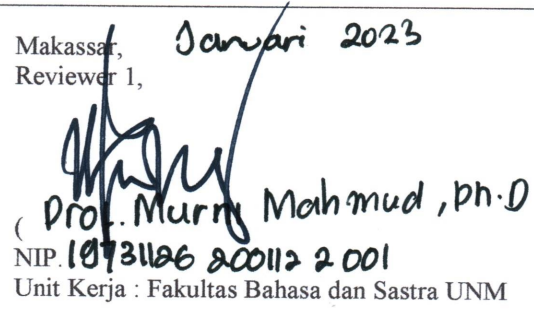 Makassar, Januari 2023
Reviewer 1,
( Prof. Murni Mahmud, Ph.D
NIP. 19731126 200112 2 001
Unit Kerja : Fakultas Bahasa dan Sastra UNM